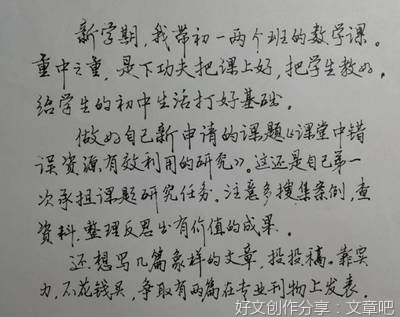 新学期，我带初一两个班的数学课。
重中之重，是下功夫把课上好，把学生教好，
给学生的初中生活打好基础。
做好自己新申请的课题《课堂中错
误资源有效利用的研究》。这还是自己第一
次承担课题研究任务。注意多搜集案例，查
资料，整理反思出有价值的成果。
还想写几篇象样的文章，投投稿。靠实
力，不花钱买，争取有两篇在专业刊物上发表。
好文创作分享：文章吧